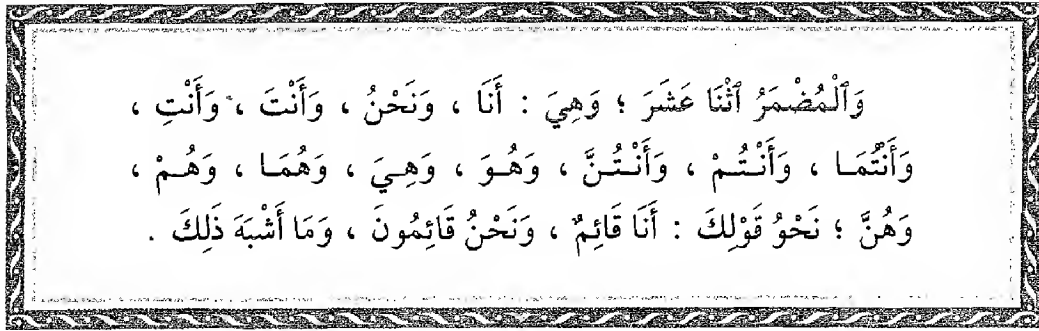 وَٱلْمُضْمَرُ ٱثْنَا عَشَرَ ؛ وَهِيَ : أَنَا ، وَنَحْنُ ، وَأَنْتَ ، وَأَنْتِ ،
وَأَنْتُمَـا ، وَأَنْـتُـمْ ، وَأَنْـتُـنَّ ، وَهُـوَ ، وَهِـيَ ، وَهُمَـا ، وَهُـمْ ،
وَهُنَّ ؛ نَحْوُ قَوْلِكَ : أَنَا قَائِمٌ ، وَنَحْنُ قَائِمُونَ ، وَمَا أَشْبَهَ ذَلِكَ .